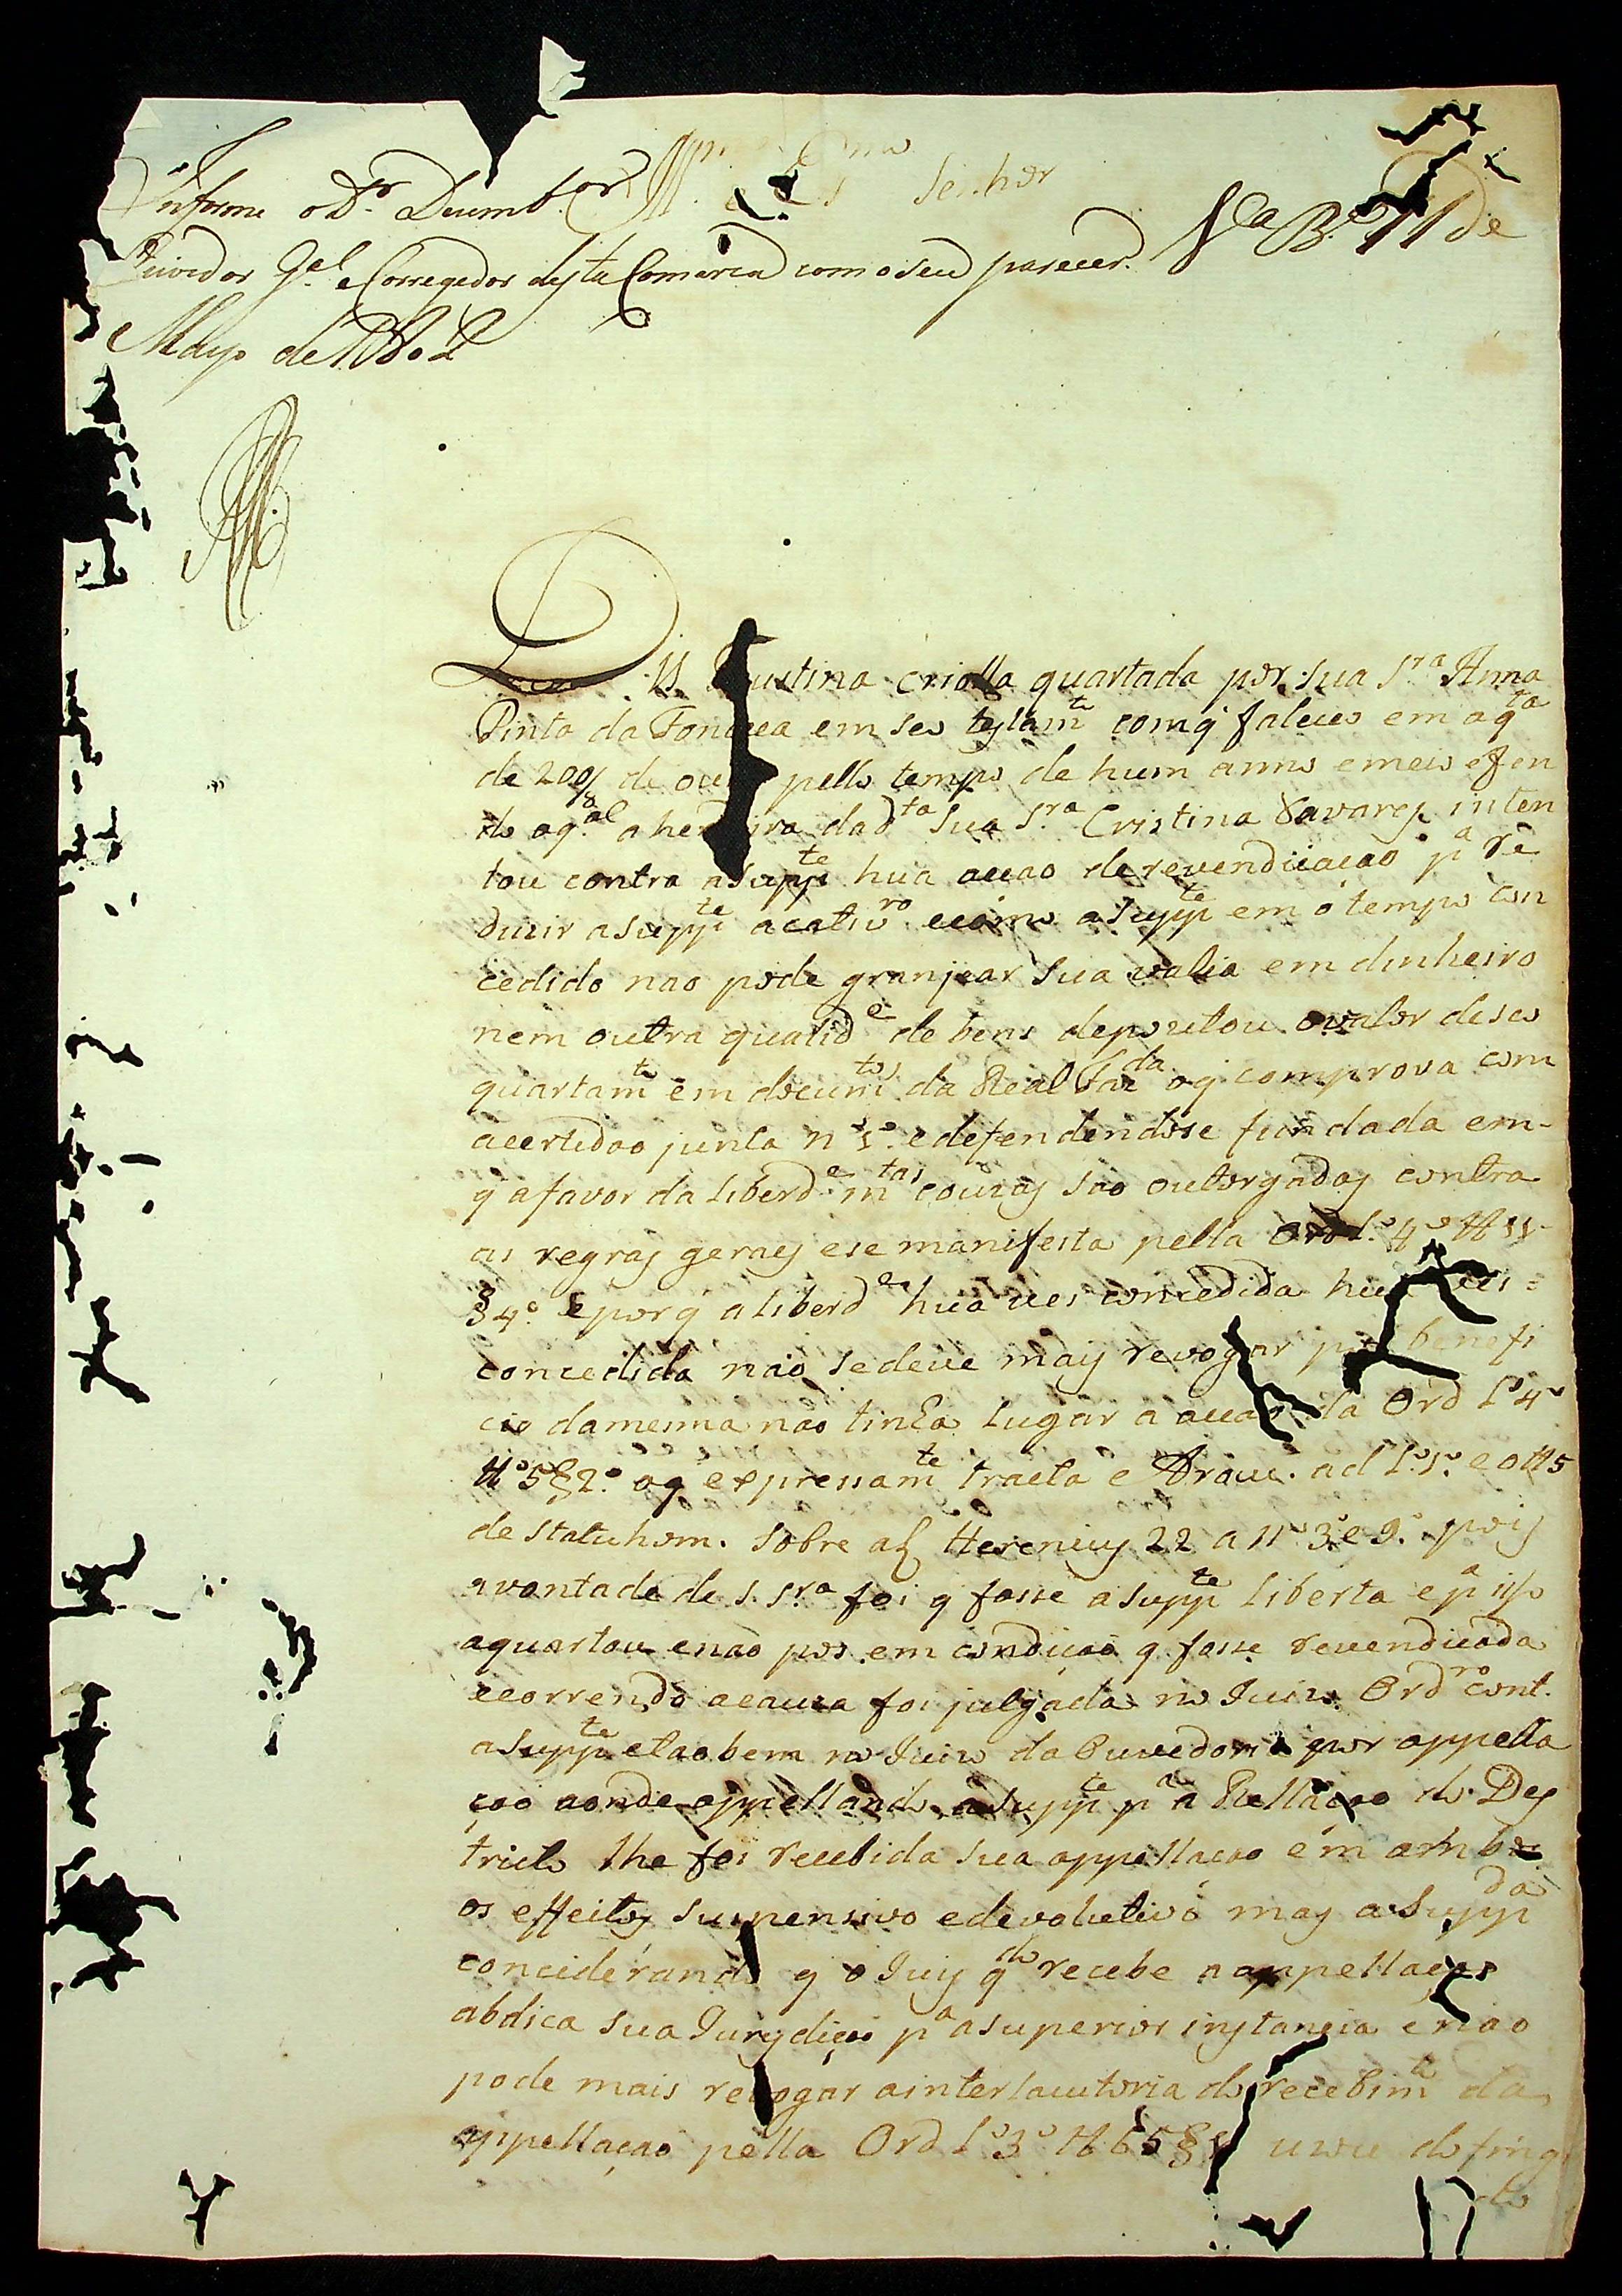 Senhor
Informe o Dr. Dezemb.or
Ouvidor G.al e Corregedor desta Comarca com o seu parecer. V.a B.a 11 de
Mayo de
Diz Faustina criolla quartada por sua Sr.a Anna
Pinto da Fonceca em seo testam.to com q̃ faleceo em a q.ta
de 200/8 de ouro pello tempo de hum anno e meio efen
do a q.al a herdeira da d.ta sua Sr.a Cristina Tavares inten
tou contra a supp.te hua acao de revendicacao p.a re
duzir a supp.te a cativ.ro e como a supp.te em o tempo con
cedido nao pode granjear sua valia em dinheiro
nem outra qualid.e de bens depozitou o valor de seo
quartam.to em docum.tos da Real Faz.da o q̃ comprova com
a certidao junta n 1.º e defendendose fundada em
q̃ a favor da liberd.e m.tas couzas sao outorgadas contra
as regras geraes e se manifesta pella Ord L.º 4.º tt 11
§ 4.º e por q̃ a liberd.e hua ves concedida hua ves
concedida nao se deve mais revogar por benefi
cio da mesma nao tinha lugar a acao da Ord L.º 4.º
o q̃ expressam.te tracta e ad L.º 1.º e o tt 5
de statu hom. sobre a 22 a n.º 3.º e 9.º pois
a vontade de s. Sr.a foi q̃ fosse a supp.te liberta e p.a isso
a quartou e nao pos em condicao q̃ fosse revendicada
e correndo a cauza foi julgada no Juizo Ord.ro cont.
a supp.te e tao bem no Juizo da Ouvedoria por appella
çao aonde appellando a supp.te p.a a Rellaçao do Des
tricto lhe foi recebida sua appellaçao em ambos
os effeitos suspensivo e devolutivo mas a Supp.da
conciderando q̃ o Juis q.do recebe a appellaçao
abdica sua Jurysdiçao p.a a superior instancia e nao
pode mais revogar a interlacutoria do recebim.to da
appellaçao pella Ord L.º 3.º tt 65 § uzou do fingi
do